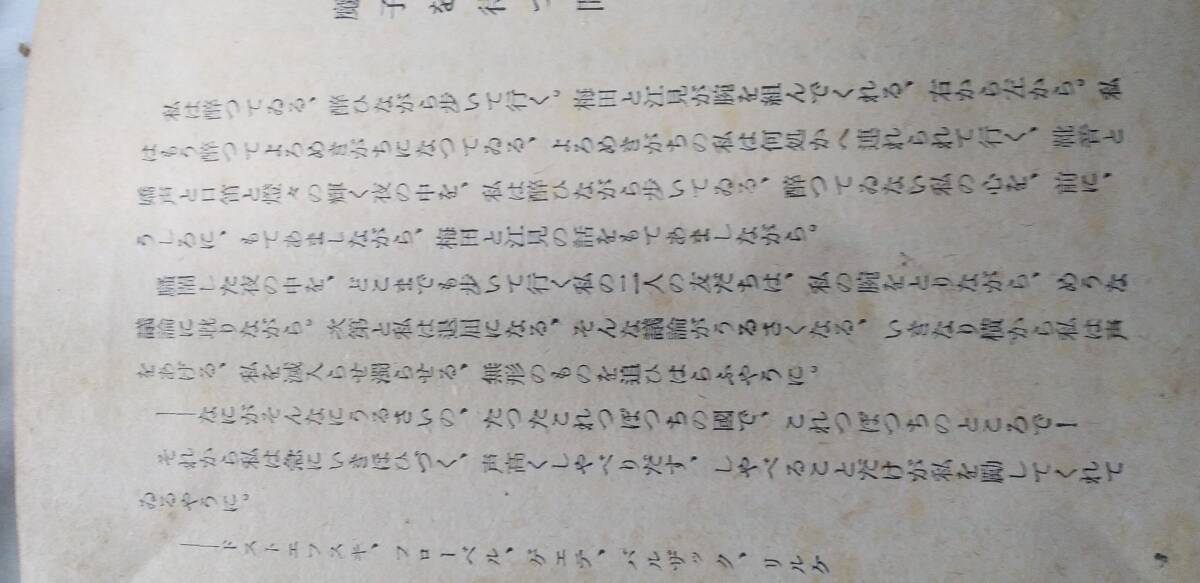 私は酔つてゐる、酔ひながら歩いて行く。梅田と江見が腕を組んでくれる、右から左から。私
はもう酔つてよろめきがちになつてゐる、よろめきがちの私は何処かへ連れられて行く、跫音と
騒声と口笛と燈々の輝く夜の中を、私は酔ひながら歩いてゐる、酔つてゐない私の心を、前に、
うしろに、もてあましながら、梅田と江見の話をもてあましながら。
した夜の中を、どこまでも歩いて行く私の二人の友だちは、私の腕をとりながら、めうな
議論に耽りながら。次第と私は退屈になる、そんな議論がうるさくなる、いきなり横から私は声
をあげる、私を滅入らせ溺らせる、無形のものを追ひはらふやうに。
――なにがそんなにうるさいの、たつたこれつぽつちの国で、これつぽつちのところで――
それから私は急にいきほひづく、声高くしやべりだす、しやべることだけが私を してくれて
ゐるやうに。
――ドストエフスキ、フローベル、ゲエテ、バルザック、リルケ